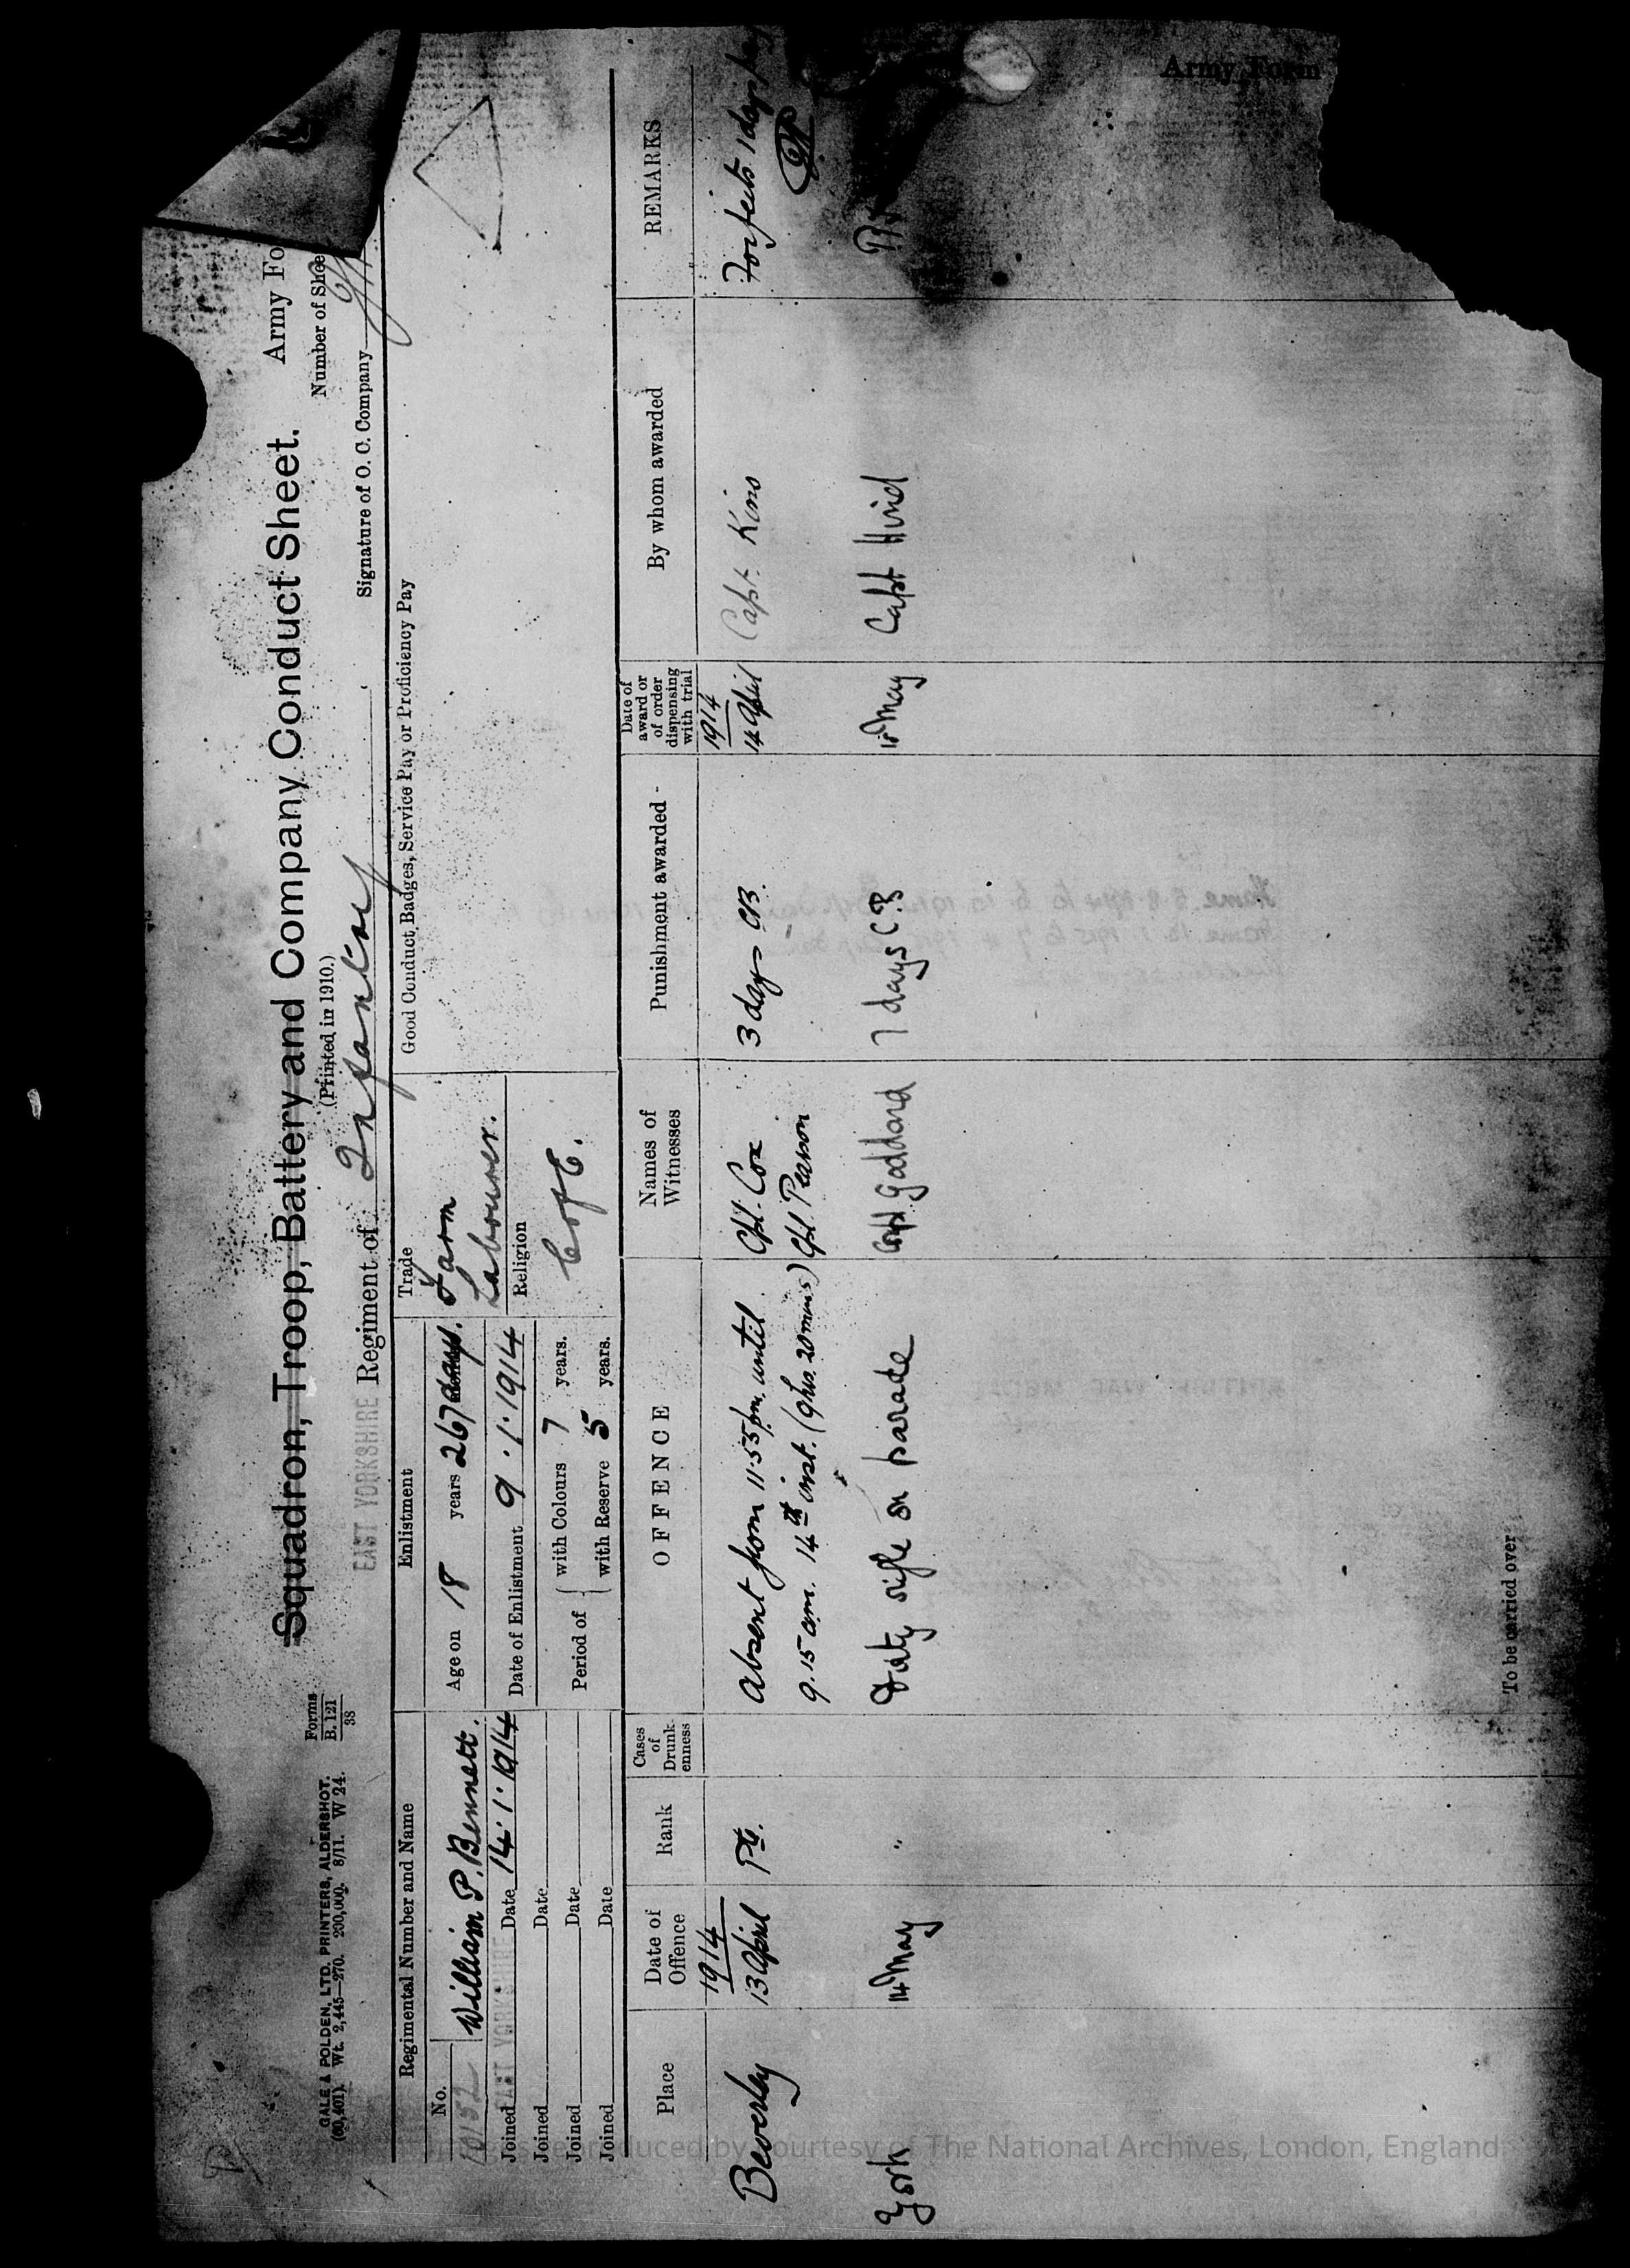 GALE & POLDEN, LTD. PRINTERS, ALDERSHOT.
(60,401). Wt. 2,445—270. 200,000. 8/11. W 24.
Forms
B. 121
38
Squadron, Troop, Battery and Company Conduct Sheet.
(Printed in 1910.)
Army Fo
Number of Shee
EAST YORKSHIRE Regiment of Infantry
Signature of O. C. Company
Regimental Number and Name
No. 10152 William P. Bennett.
Joined EAST YORKSHIRE Date 14.1.1914
Joined Date
Joined Date
Joined Date
Enlistment
Age on 18 years 267 days.
Date of Enlistment 9.1.1914
Period of { with Colours 7 years.
with Reserve 5 years.
Trade
Farm
Labourer.
Religion
C of E.
Good Conduct Badges, Service Pay or Proficiency Pay
Place
Date of Offence
Rank
Cases of Drunkenness
OFFENCE
Names of Witnesses
Punishment awarded
Date of award or of order dispensing with trial
By whom awarded
REMARKS
1914 1914
Beverley 13 April Pte. Absent from 11.55 pm. until Cpl. Cox 3 days CB. 14 April Capt. Kino Forfeits 1 days
9.15 am. 14th inst. (9 hrs. 20 mins) Cpl. Pearson
York 14th May " Dirty rifle on parade Corpl Goddard 7 days C.B 15th May Capt Hind
To be carried over
Army Form
Images reproduced by courtesy of The National Archives, London, England.